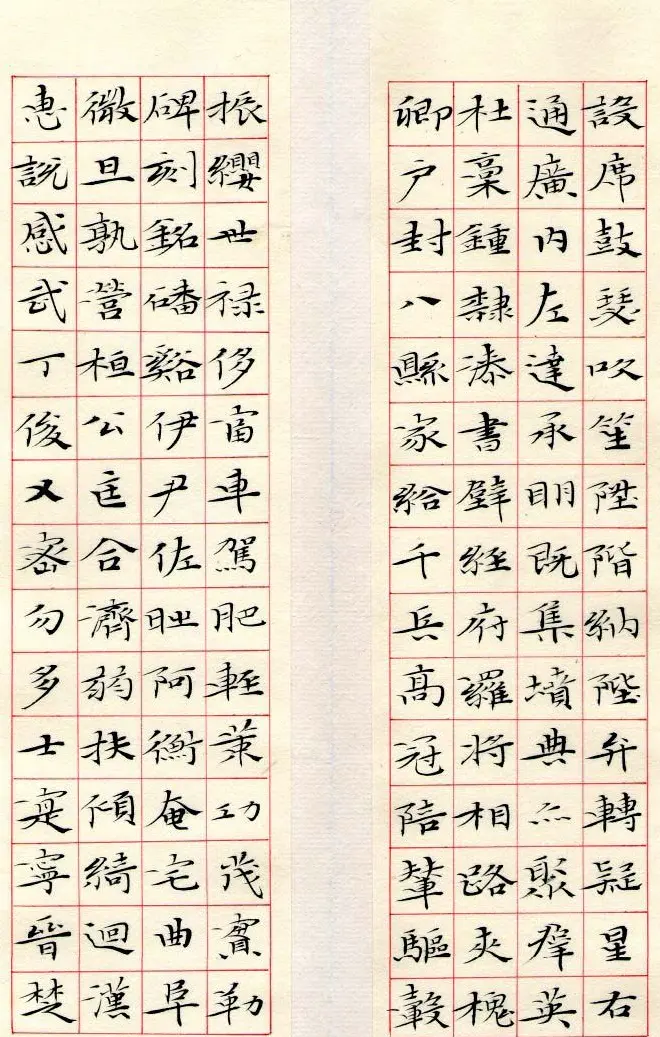 設席鼓瑟吹笙陞階納陛弁轉疑星右
通廣内左達承明既集墳典亦聚羣英
杜稾鍾隸漆書壁經府羅將相路夾槐
卿戶封八縣家給千兵髙冠陪輦驅轂
振纓世禄侈富車駕肥輕策功茂實勒
碑刻銘磻谿伊尹佐時阿衡奄宅曲阜
微旦孰營桓公匡合濟弱扶傾綺迴漢
惠說感武丁俊乂密勿多士寔寧晉楚